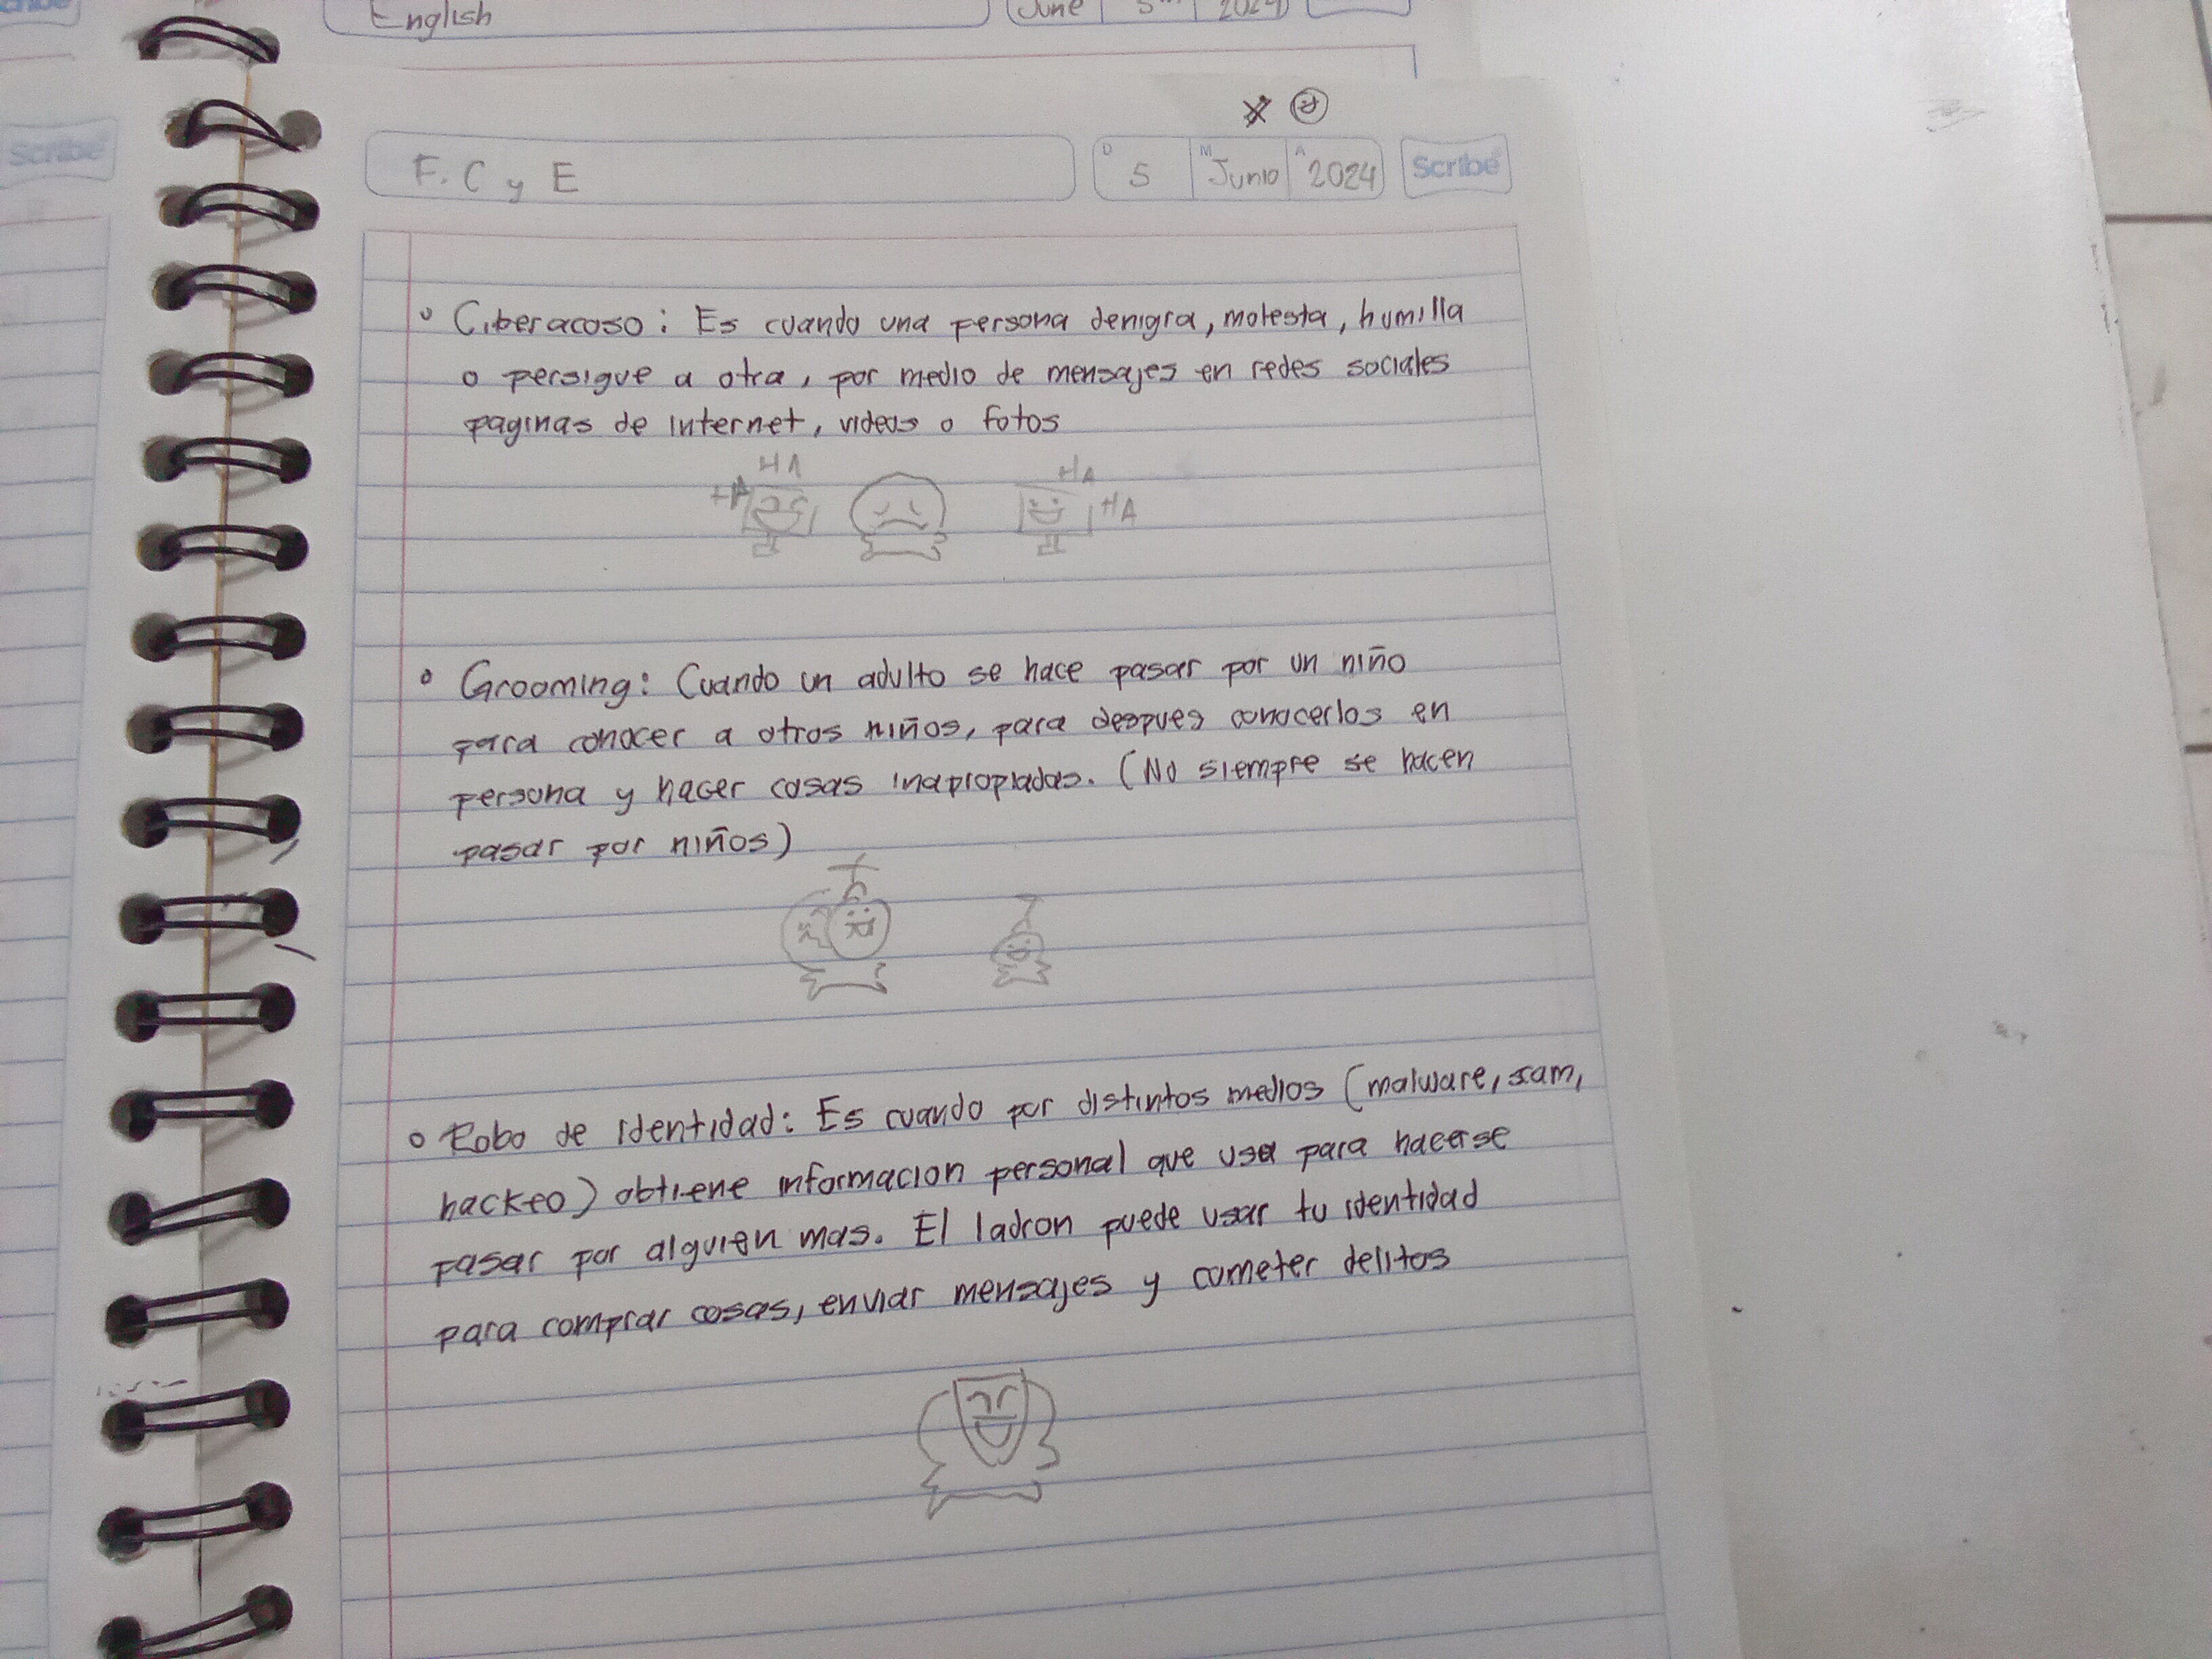 English
June 5th 2024
Scribe
F. C y E
D 5 M Junio A 2024 Scribe
Ciberacoso: Es cuando una persona denigra, molesta, humilla
o persigue a otra, por medio de mensajes en redes sociales
paginas de internet, videos o fotos
HA HA
HA HA
Grooming: Cuando un adulto se hace pasar por un niño
para conocer a otros niños, para despues conocerlos en
persona y hacer cosas inapropiadas. (No siempre se hacen
pasar por niños)
Robo de identidad: Es cuando por distintos medios (malware, sam,
hackeo) obtiene informacion personal que usa para hacerse
pasar por alguien mas. El ladron puede usar tu identidad
para comprar cosas, enviar mensajes y cometer delitos